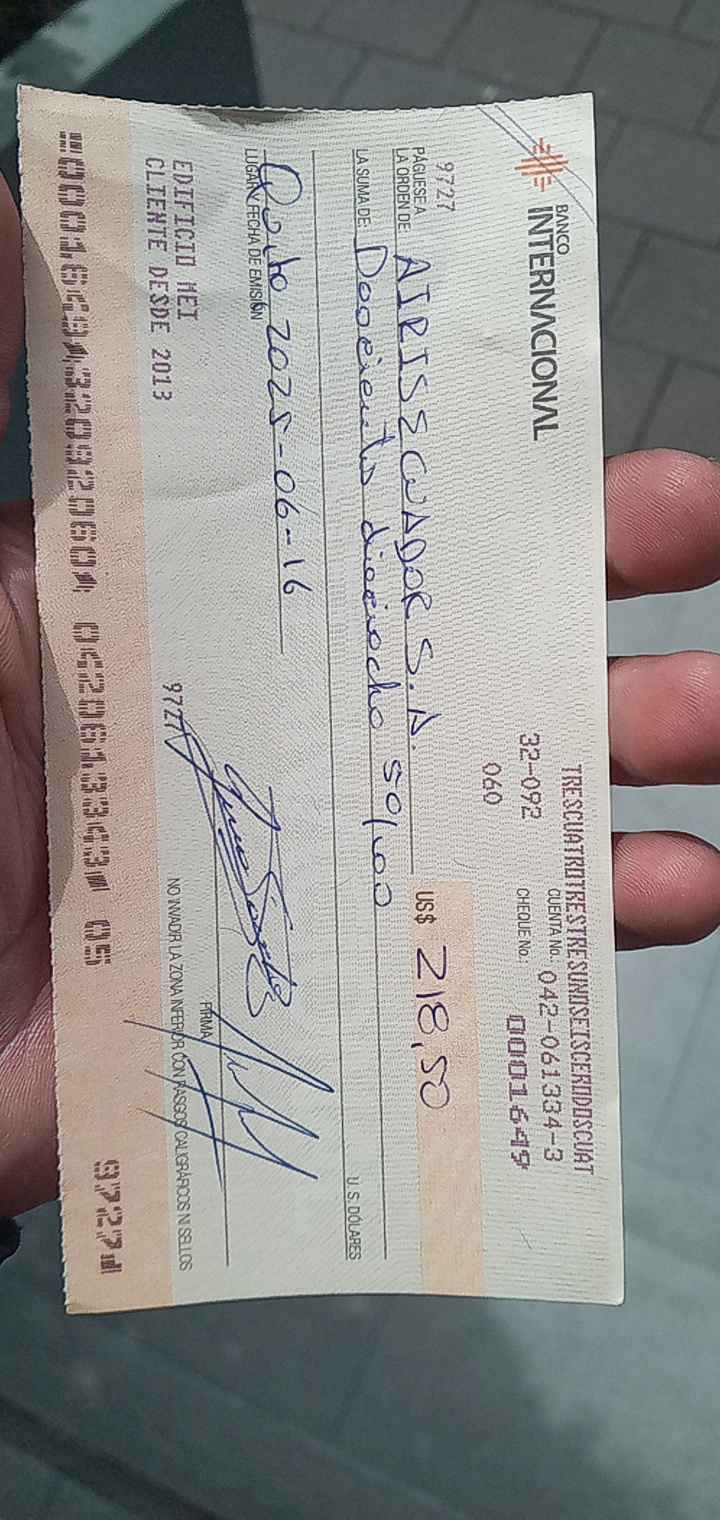 BANCO
INTERNACIONAL
TRESCUATROTRESTRESUNOSEISCERODOSCUAT
CUENTA No.: 042-061334-3
32-092 CHEQUE No.: 0001649
060
9727
PÁGUESE A
LA ORDEN DE: AIRIS ECUADOR S.A. US$ 218,50
LA SUMA DE: Doscientos dieciocho 50/100
U. S. DÓLARES
Quito 2025-06-16
LUGAR Y FECHA DE EMISIÓN
FIRMA
EDIFICIO MEI 9727
CLIENTE DESDE 2013 NO INVADIR LA ZONA INFERIOR CON RASGOS CALIGRÁFICOS NI SELLOS